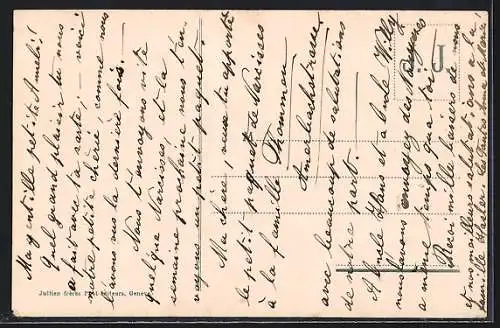 Ma gentille petite Amélie!
Quel grand plaisir tu nous
a fait avec ta carte; – voici
notre petite chérie comme nous
l'avons vu la dernière fois. –
Nous t'envoyons vite
quelque Narcisses, et la
semaine prochaine nous t'en-
voyons un petit paquet.
Ma chère, veux tu apporter
le petit paquet de Narcisses
à la famille Thommen
Ameisbachstrasse
avec beaucoup de salutations
de notre part.
A Oncle Hans et à Oncle Willy
nous avons envoyez des
a même temps qu'a toi.
Recoi mille baisers de nous
et nos meilleurs salutations a la
famille
J.J.
Jullien frères Phot-Editeurs, Genève